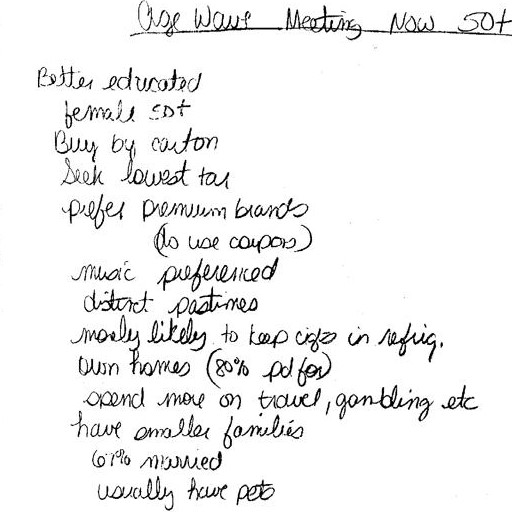 Age Wave Meeting Now 50+
Better educated
female 50+
Buy by carton
Seek lowest tar
prefer premium brands
(do use coupons)
music preferenced
distinct pastimes
morely likely to keep cigs in refrig.
own homes (80% pd for)
spend more on travel, gambling etc
have smaller families
67% married
usually have pets